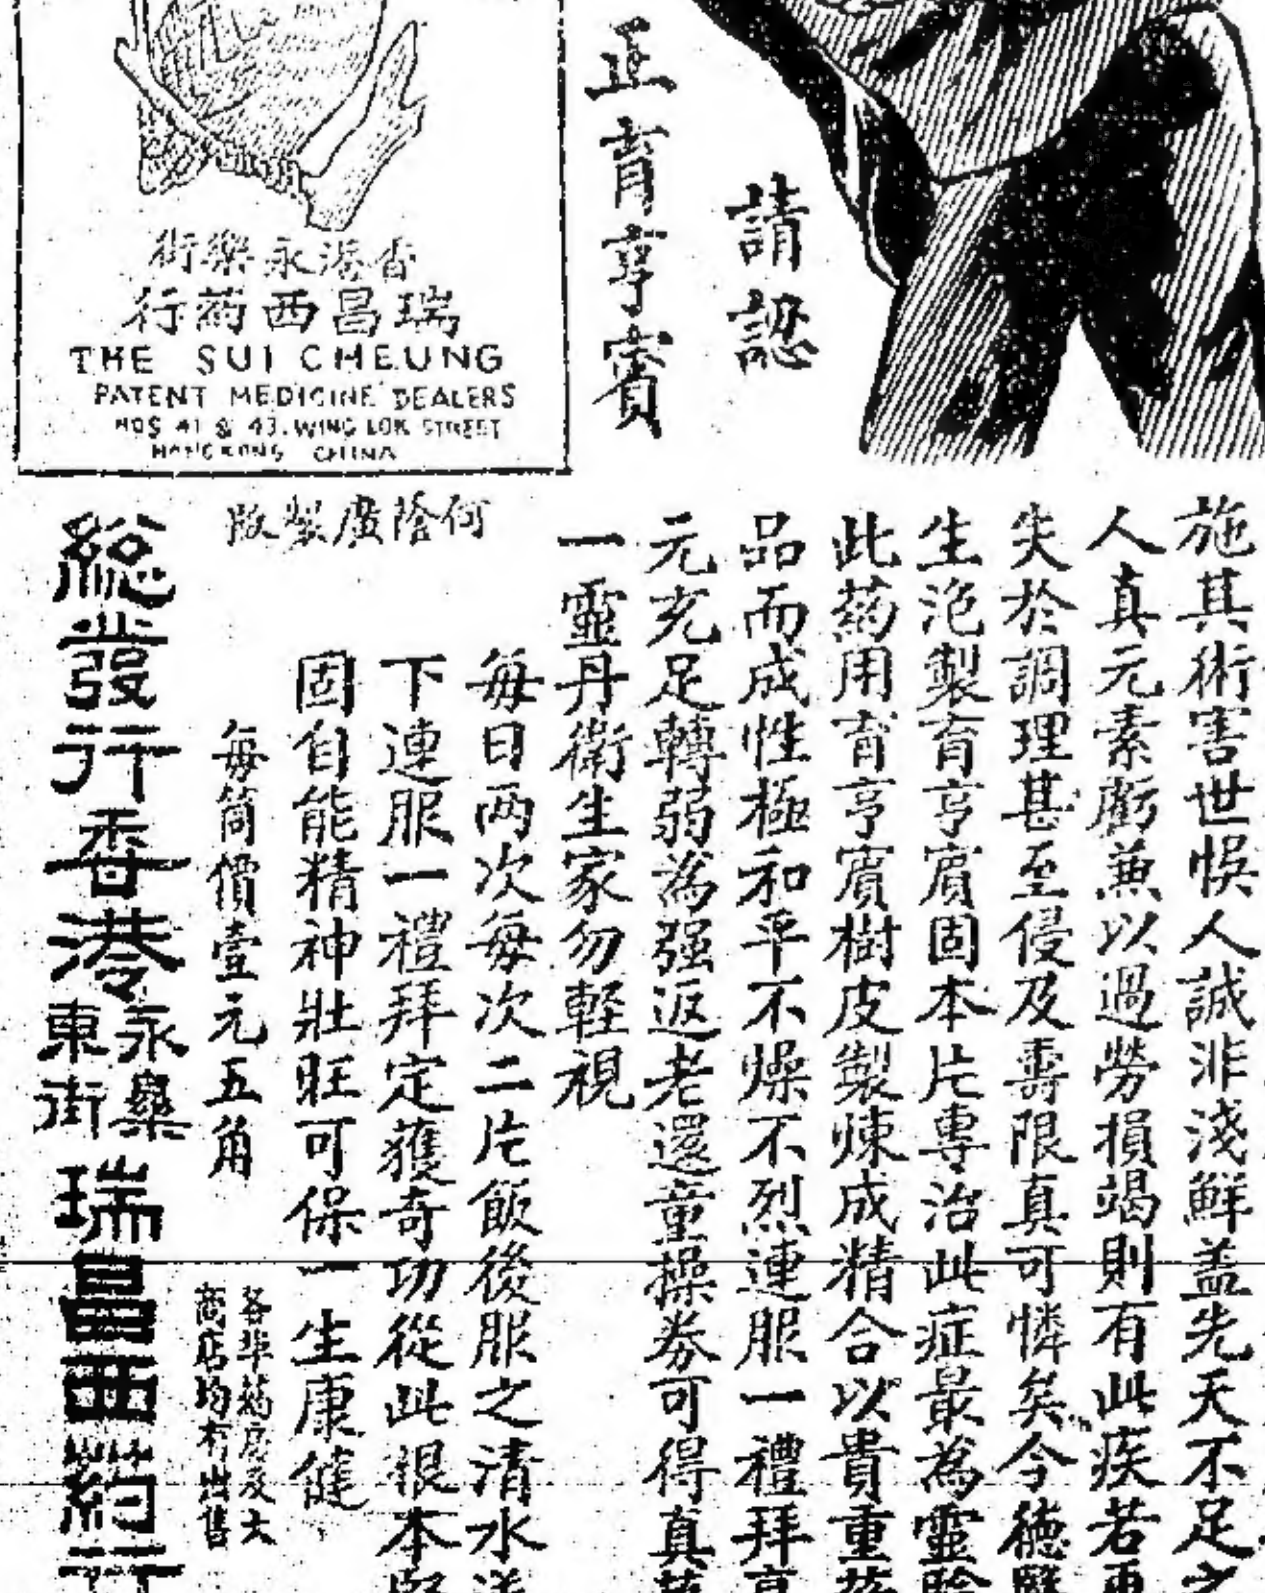 請認
正育亨賓
香港永樂街
瑞昌西葯行
THE SUI CHEUNG
PATENT MEDICINE DEALERS
NOS 41 & 43. WING LOK STREET
HONG KONG CHINA
何蔭廣製版
施其術害世悞人誠非淺鮮盖先天不足之
人真元素虧兼以過勞損竭則有此疾若再
失於調理甚至侵及壽限真可憐矣今德醫
生泡製育亨賓固本片專治此症最為靈驗
此葯用育亨賓樹皮製煉成精合以貴重葯
品而成性極和平不燥不烈連服一禮拜真
元充足轉弱為强返老還童操券可得真萬
一靈丹衛生家勿輕視
每日两次每次二片飯後服之清水送
下連服一禮拜定獲奇功從此根本堅
固自能精神壯旺可保一生康健
每筒價壹元五角
各埠葯房及大
商店均有出售
總發行香港永樂東街瑞昌西葯行